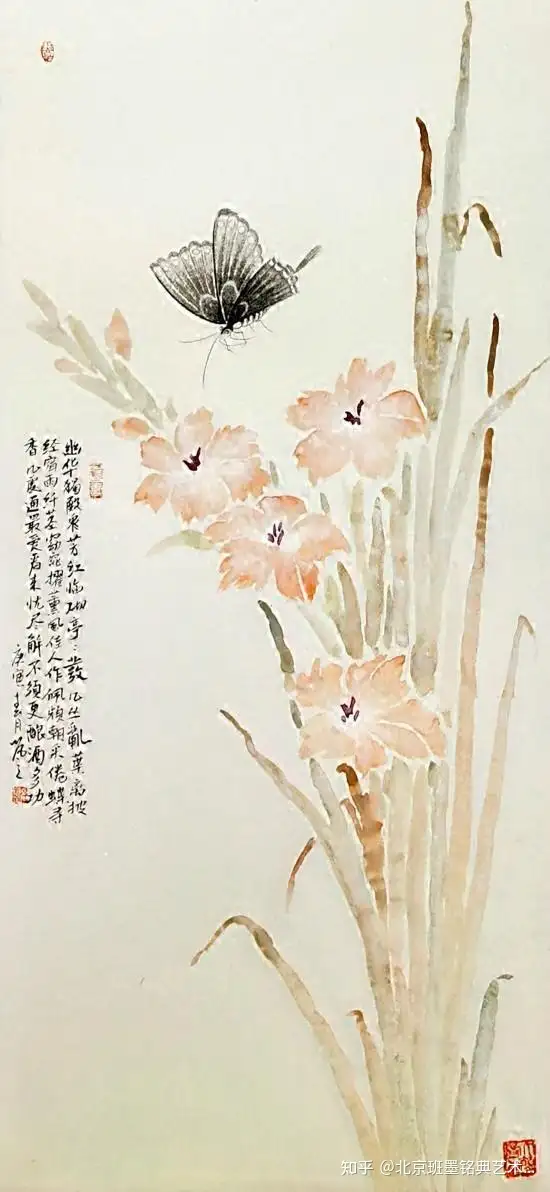 幽华獨殿众芳红临砌亭亭發几丛亂葉离披
经宿雨纤茎窈窕擢薰風佳人作佩频朝采倦蝶寻
香几處通最爱看来忧尽解不须更酿酒多功
庚寅月之
知乎 @北京班墨铭典艺术